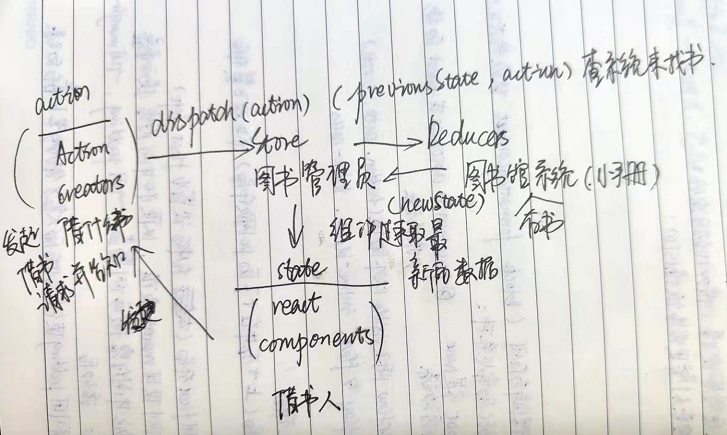 action
Action
Creators
dispatch(action)
(previousState, action) 查系统来找书.
Store
Reducers
图书管理员
图书馆系统(小手册)
(newState)
有书
组件读取最
新的数据
发起
借书
借什么书
state
react
components
借书人